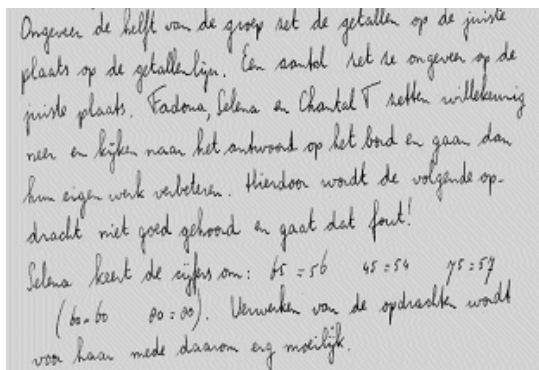 Ongeveer de helft van de groep zet de getallen op de juiste
plaats op de getallenlijn. Een aantal zet ze ongeveer op de
juiste plaats. Fadona, Selena en Chantal T zetten willekeurig
neer en kijken naar het antwoord op het bord en gaan dan
hun eigen werk verbeteren. Hierdoor wordt de volgende op-
dracht niet goed gehoord en gaat dat fout!
Selena keert de cijfers om: 65 = 56 45 = 54 75 = 57
(60 = 60 80 = 80). Verwerken van de opdrachten wordt
voor haar mede daarom erg moeilijk.